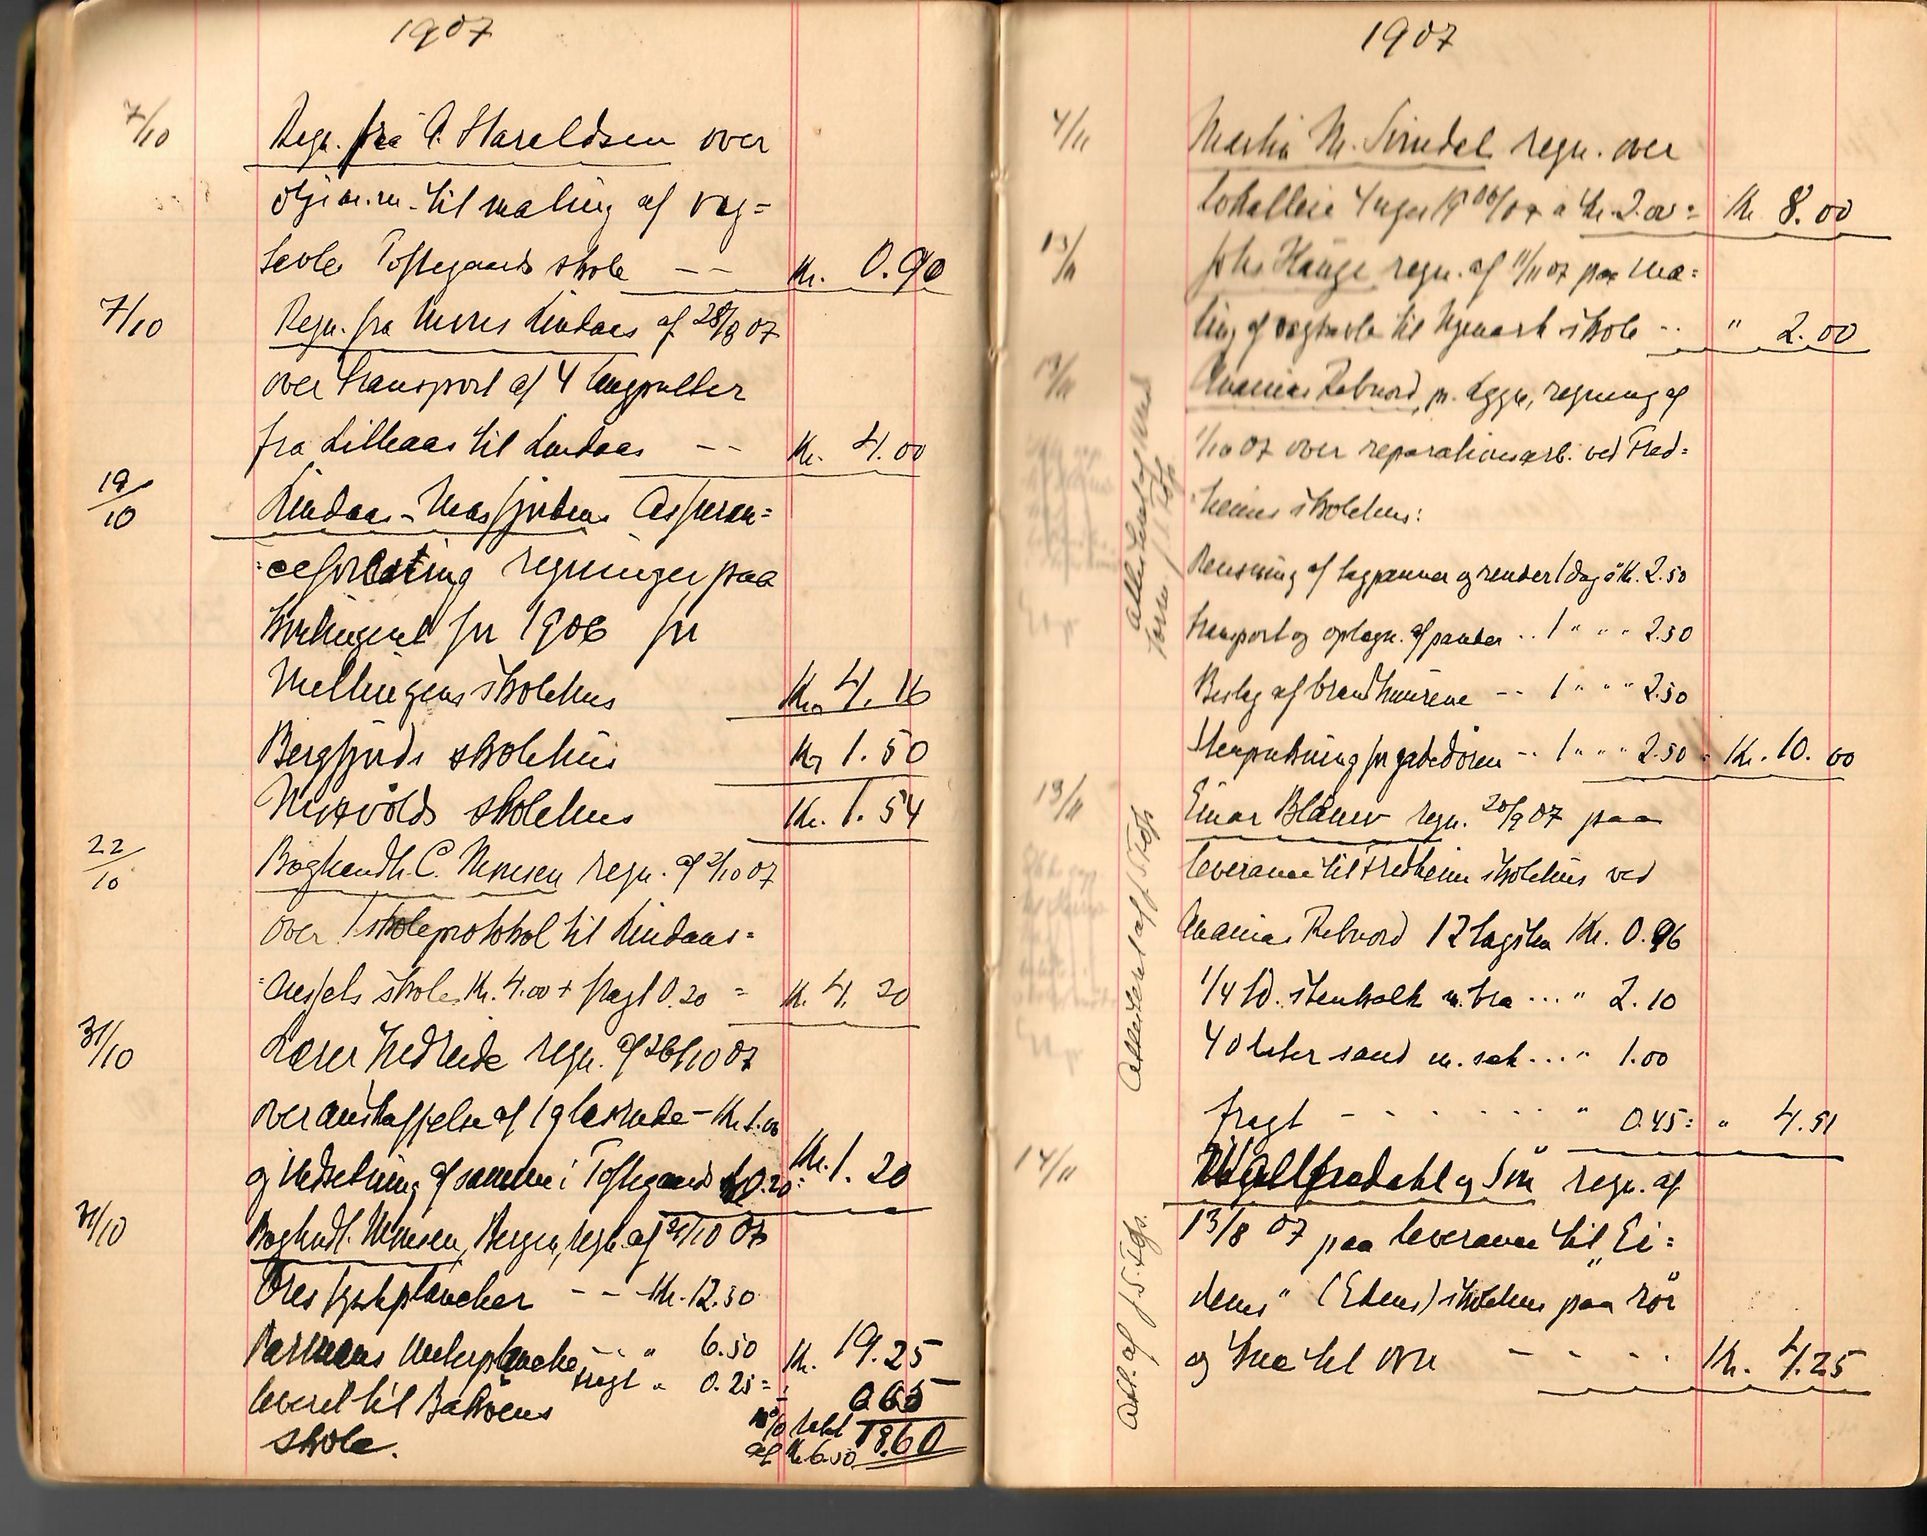 1907
7/10 Regn. fra A. Haraldsen over
olje m.m. til maling af væg=
tavle Toftegaards skole -- Kr. 0.90
7/10 Regn. fra Mons Lindaas af 28/9 07
over transport af 4 langpulter
fra Lilleaas til Lindaas -- Kr. 4.00
19/10 Lindaas-Masfjordens Assuran=
=ceforening regninger paa
kontingent for 1906 for
Mellingens skolehus Kr. 4.16
Bergfjords skolehus Kr 1.50
skolehus Kr. 1.54
22/10 Boghandl. C. Monsen regn. af 2/10 07
over 1 skoleprotokol til Lindaas=
skole Kr. 4.00 + fragt 0.20 = Kr. 4. 20
31/10 Lærer Nedreide regn. af 26/10 07
over anskaffelse af 1 glasrude - Kr. 1.00
og indsetning af samme i Toftegaards 0.20= Kr. 1. 20
31/10 Boghndl. Monsen, Bergen, regn. af 21/10 07
fysikplancher -- Kr. 12.50
6.50 Kr. 19.25
fragt " 0.25 =
leveret til Bakøens 0.65
skole. 10% rabt af Kr 6.50 18.60
1907
4/11 Martin M. Svindal regn. over
lokalleie 4 uger 1906/07 a Kr. 2.00 = Kr. 8.00
13/11 Johs Hauge regn. af 11/11 07 paa ma=
ling af vægtavle til Nymark skole -- " 2.00
13/11 Ananias Rebnord, pr. Lygre, regning af
1/10 07 over reparationsarb. ved Fred=
heims skolehus:
Rensning af tagpanner og render 1 dag á Kr. 2.50
transport og oplægn. af pander .. 1 " " " 2.50
Beslag af brandmurene -- 1 " " " 2.50
for gadedören -- 1 " " " 2.50 = Kr. 10. 00
13/11 Einar Blaauw regn. 20/9 07 paa
leverance til Fredheim skolehus ved
Ananias Rebnord 12 tagsten Kr. 0.96
1/4 td. stenkalk m. tra ... " 2.10
40 liter sand m. sæk ... " 1.00
fragt - - - " 0.45 = " 4.51
14/11 og Sön regn. af
13/8 07 paa leverance til "Ei=
dems" (Edems) skolehus paa rör
og knæ til ovn - - - Kr. 4.25
Attesteret af
Attesteret af
Att. af